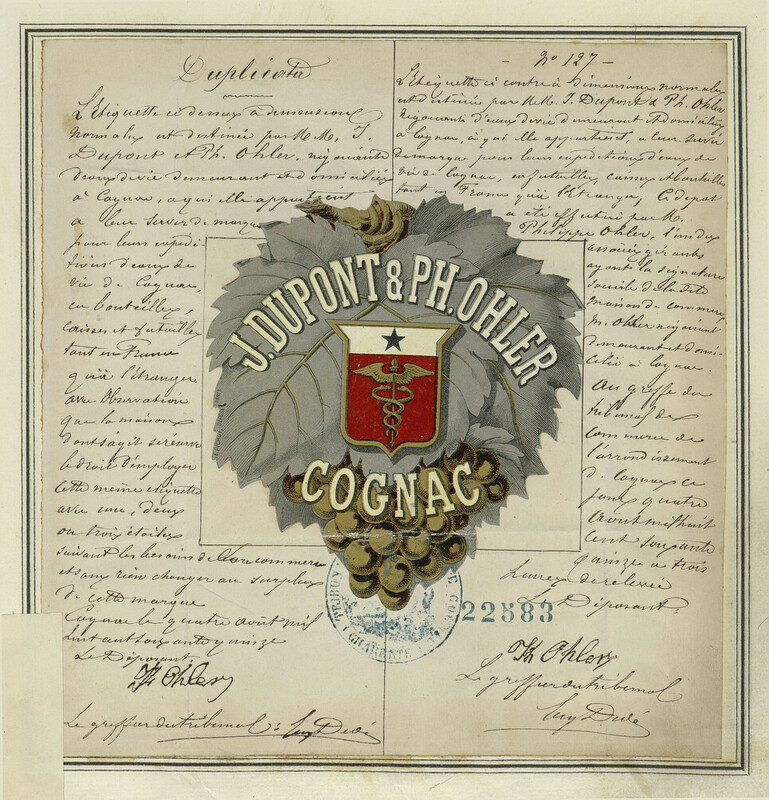 Duplicata
L'Etiquette ci dessus à dimensions
normales est destinée par M.M. J.
Dupont et Ph. Ohler, négociants
d'eaux de vie demeurant et domiciliés
à Cognac, à qui elle appartient
à leur servir de marque
pour leurs expédi-
tions d'eaux de
vie de Cognac,
en bouteilles,
caisses et futailles
tant en France
qu'à l'étranger
avec Observation
que la maison
dont s'agit se réserve
le droit d'employer
cette même etiquette
avec une, deux
ou trois étoiles
suivant les besoins de leur commerce
et sans rien changer au surplus
de cette marque
Cognac le quatre août mil
huit cent soixante quinze
Le Déposant.
Ph Ohler
Le greffier du tribunal
No 127
L'Etiquette ci contre à dimensions normales
est destinée par M.M. J. Dupont & Ph. Ohler
Négociants d'eaux de vie demeurant et domiciliés
à Cognac, à qui elle appartient, à leur servir
de marque pour leurs expéditions d'eaux de
vie de Cognac, en futailles, caisses et bouteilles
tant en France qu'à l'Etranger, Ce dépot
a été effectué par M.
Philippe Ohler, l'un des
associés gérants
ayant la signature
sociale de la dite
maison de commerce
M. Ohler négociant
demeurant et domi-
cilié à Cognac.
Au greffe du
tribunal de
commerce de
l'arrondissement
de Cognac ce
jour quatre
août mil huit
cent soixante
quinze à trois
heures de relevée
Le Déposant.
Ph Ohler
Le greffier du tribunal
J. DUPONT & PH. OHLER
COGNAC
22583
TRIBUN
CHARENTE